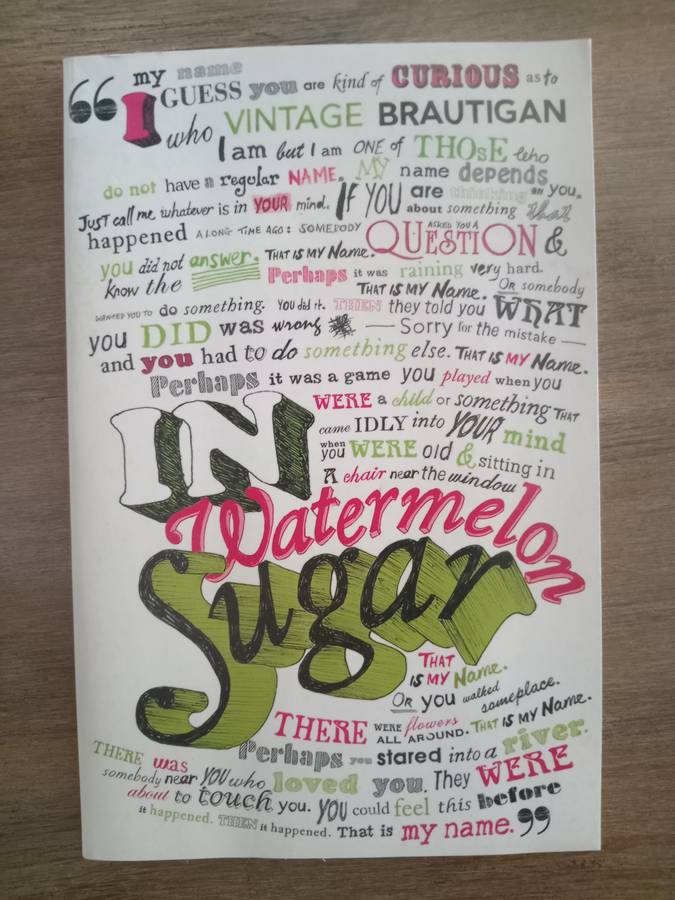 “ my name
I GUESS you are kind of CURIOUS as to
who VINTAGE BRAUTIGAN
I am but I am ONE of THOSE who
do not have a regular NAME. MY name depends
Just call me whatever is in YOUR mind. IF YOU are thinking on you.
about something that
happened A LONG TIME AGO: SOMEBODY ASKED YOU A QUESTION &
you did not know the answer. THAT IS MY Name.
Perhaps it was raining very hard.
THAT IS MY Name. OR somebody
WANTED YOU TO do something. YOU did it. THEN they told you WHAT
you DID was wrong — Sorry for the mistake —
and you had to do something else. THAT IS MY Name.
Perhaps it was a game you played when you
WERE a child or something THAT
came IDLY into YOUR mind
when you WERE old & sitting in
A chair near the window
IN
Watermelon
Sugar
THAT
IS MY Name.
OR you walked someplace.
THERE WERE flowers ALL AROUND. THAT IS MY Name.
Perhaps you stared into a river.
THERE was
somebody near YOU who loved you. They WERE
about to touch you. YOU could feel this before
it happened. THEN it happened. That is my name. ”